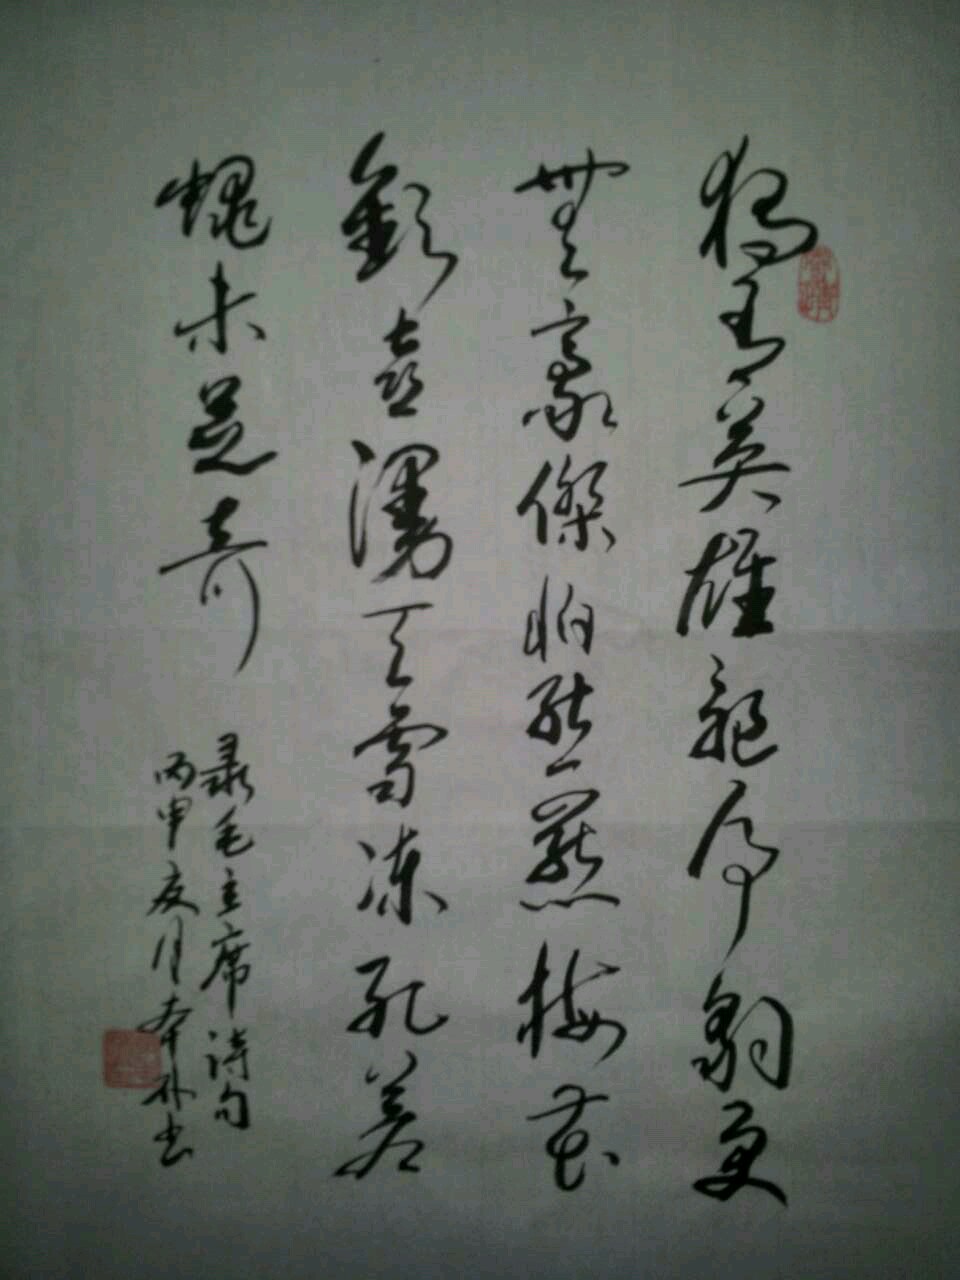 獨有英雄驅虎豹更
無豪傑怕熊羆梅花
歡喜漫天雪凍死蒼
蠅未足奇
录毛主席詩句
丙申夏月书